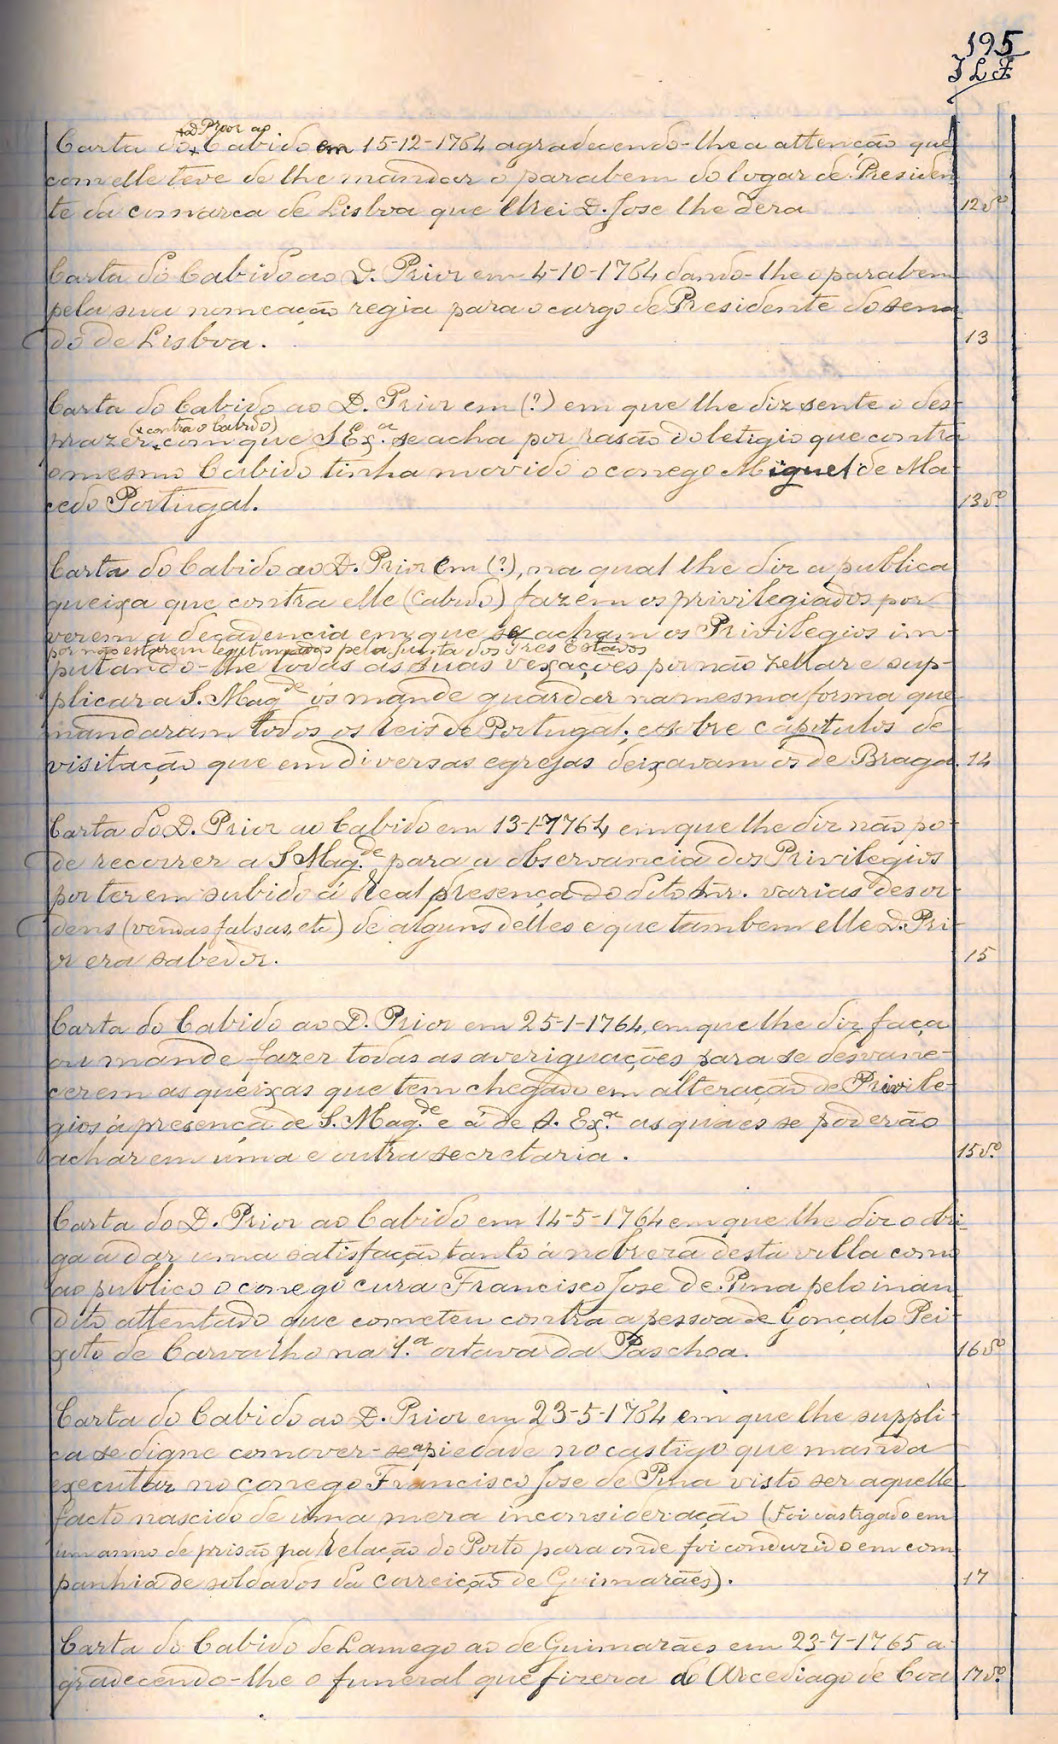 195
J L F
+ D. Prior ao
Carta do + Cabido em 15-12-1764 agradecendo-lhe a attenção que
com elle teve de lhe mandar o parabem do logar de Presiden
te da comarca de Lisboa que Elrei D. Jose lhe dera 12 vº
Carta do Cabido ao D. Prior em 4-10-1764 dando-lhe o parabem
pela sua nomeação regia para o cargo de Presidente do sena
do de Lisboa. 13
Carta do Cabido ao D. Prior em (?) em que lhe diz sente o des-
(+ contra o Cabido)
prazer + com que S Exª. se acha por rasão do letigio que contra
o mesmo Cabido tinha movido o conego Miguel de Ma-
cedo Portugal. 13 vº.
Carta do Cabido ao D. Prior em (?), na qual lhe diz a publica
queixa que contra elle (Cabido) fazem os privilegiados por
verem a decadencia em que se acham os Privilegios im-
por não estarem legitimados pela Junta dos Tres Estados
putando-lhe todas as suas vexações por não zellar e sup-
plicar a S. Magde os mande guardar na mesma forma que
mandaram todos os Reis de Portugal; e sobre capitulos de
visitação que em diversas egrejas deixavam os de Braga. 14
Carta do D. Prior ao Cabido em 13-1-1764 em que lhe diz não po-
de recorrer a S Mag.de para a observancia dos Privilegios
por terem subido á Real presença do dito Snr. varias desor-
dens (vendas falsas, etc) de alguns delles e que tambem elle D. Pri-
or era sabedor. 15
Carta do Cabido ao D. Prior em 25-1-1764, em que lhe diz faça
ou mande fazer todas as averiguações para se desvane-
cerem as queixas que tem chegado em alteração de Privile-
gios á presença de S. Mag.de e á de S. Ex.ª as quaes se poderão
achar em uma e outra secretaria. 15 vº.
Carta do D. Prior ao Cabido em 14-5-1764 em que lhe diz obri-
ga a dar uma satisfação tanto á nobreza desta villa como
ao publico o conego cura Francisco Jose de Pina pelo inau
dito attentado que cometeu contra a pessoa de Gonçalo Pei-
xoto de Carvalho na 1.ª oitava da Paschoa. 16 vº
Carta do Cabido ao D. Prior em 23-5-1764 em que lhe suppli-
ca se digne comover-se a piedade no castigo que manda
executar no conego Francisco Jose de Pina visto ser aquelle
facto nascido de uma mera inconsideração (Foi castigado em
um anno de prisão na Relação do Porto para onde foi conduzido em com
panhia de soldados da correição de Guimarães). 17
Carta do Cabido de Lamego ao de Guimarães em 23-7-1765 a-
gradecendo-lhe o funeral que fizera do Arcediago de Coa 17 vº.